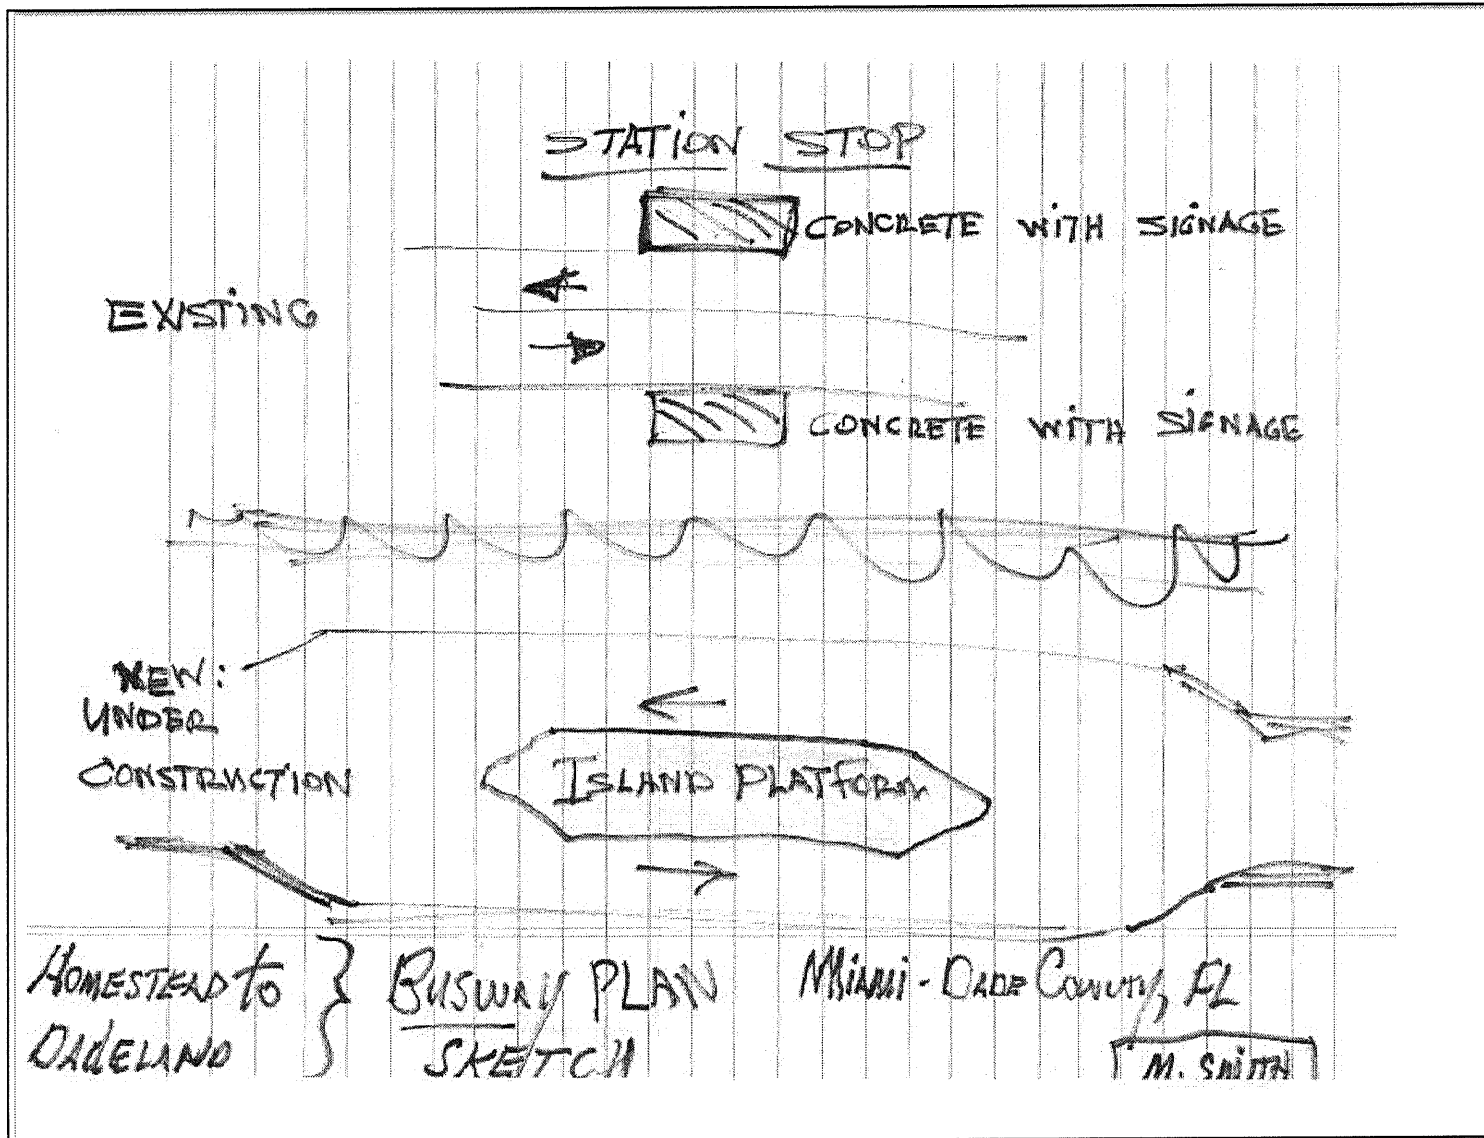 STATION STOP
CONCRETE WITH SIGNAGE
EXISTING
CONCRETE WITH SIGNAGE
NEW:
UNDER
CONSTRUCTION
ISLAND PLATFORM
HOMESTEAD to
DADELAND
BUSWAY PLAN
SKETCH
Miami-DADE COUNTY, FL
M. SMITH